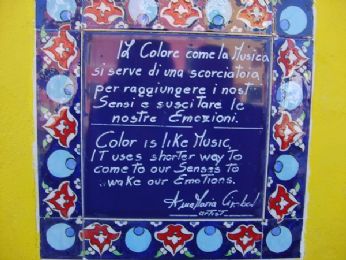 Il Colore come la Musica
si serve di una scorciatoia
per raggiungere i nostri
Sensi e suscitare le
nostre Emozioni.
Color is like Music,
IT uses shorter way to
come to our Senses to
wake our Emotions.
AnaMaria
artist